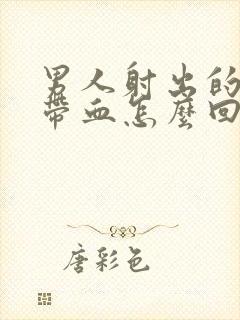 男人射出的
帶血怎麼回
唐彩色